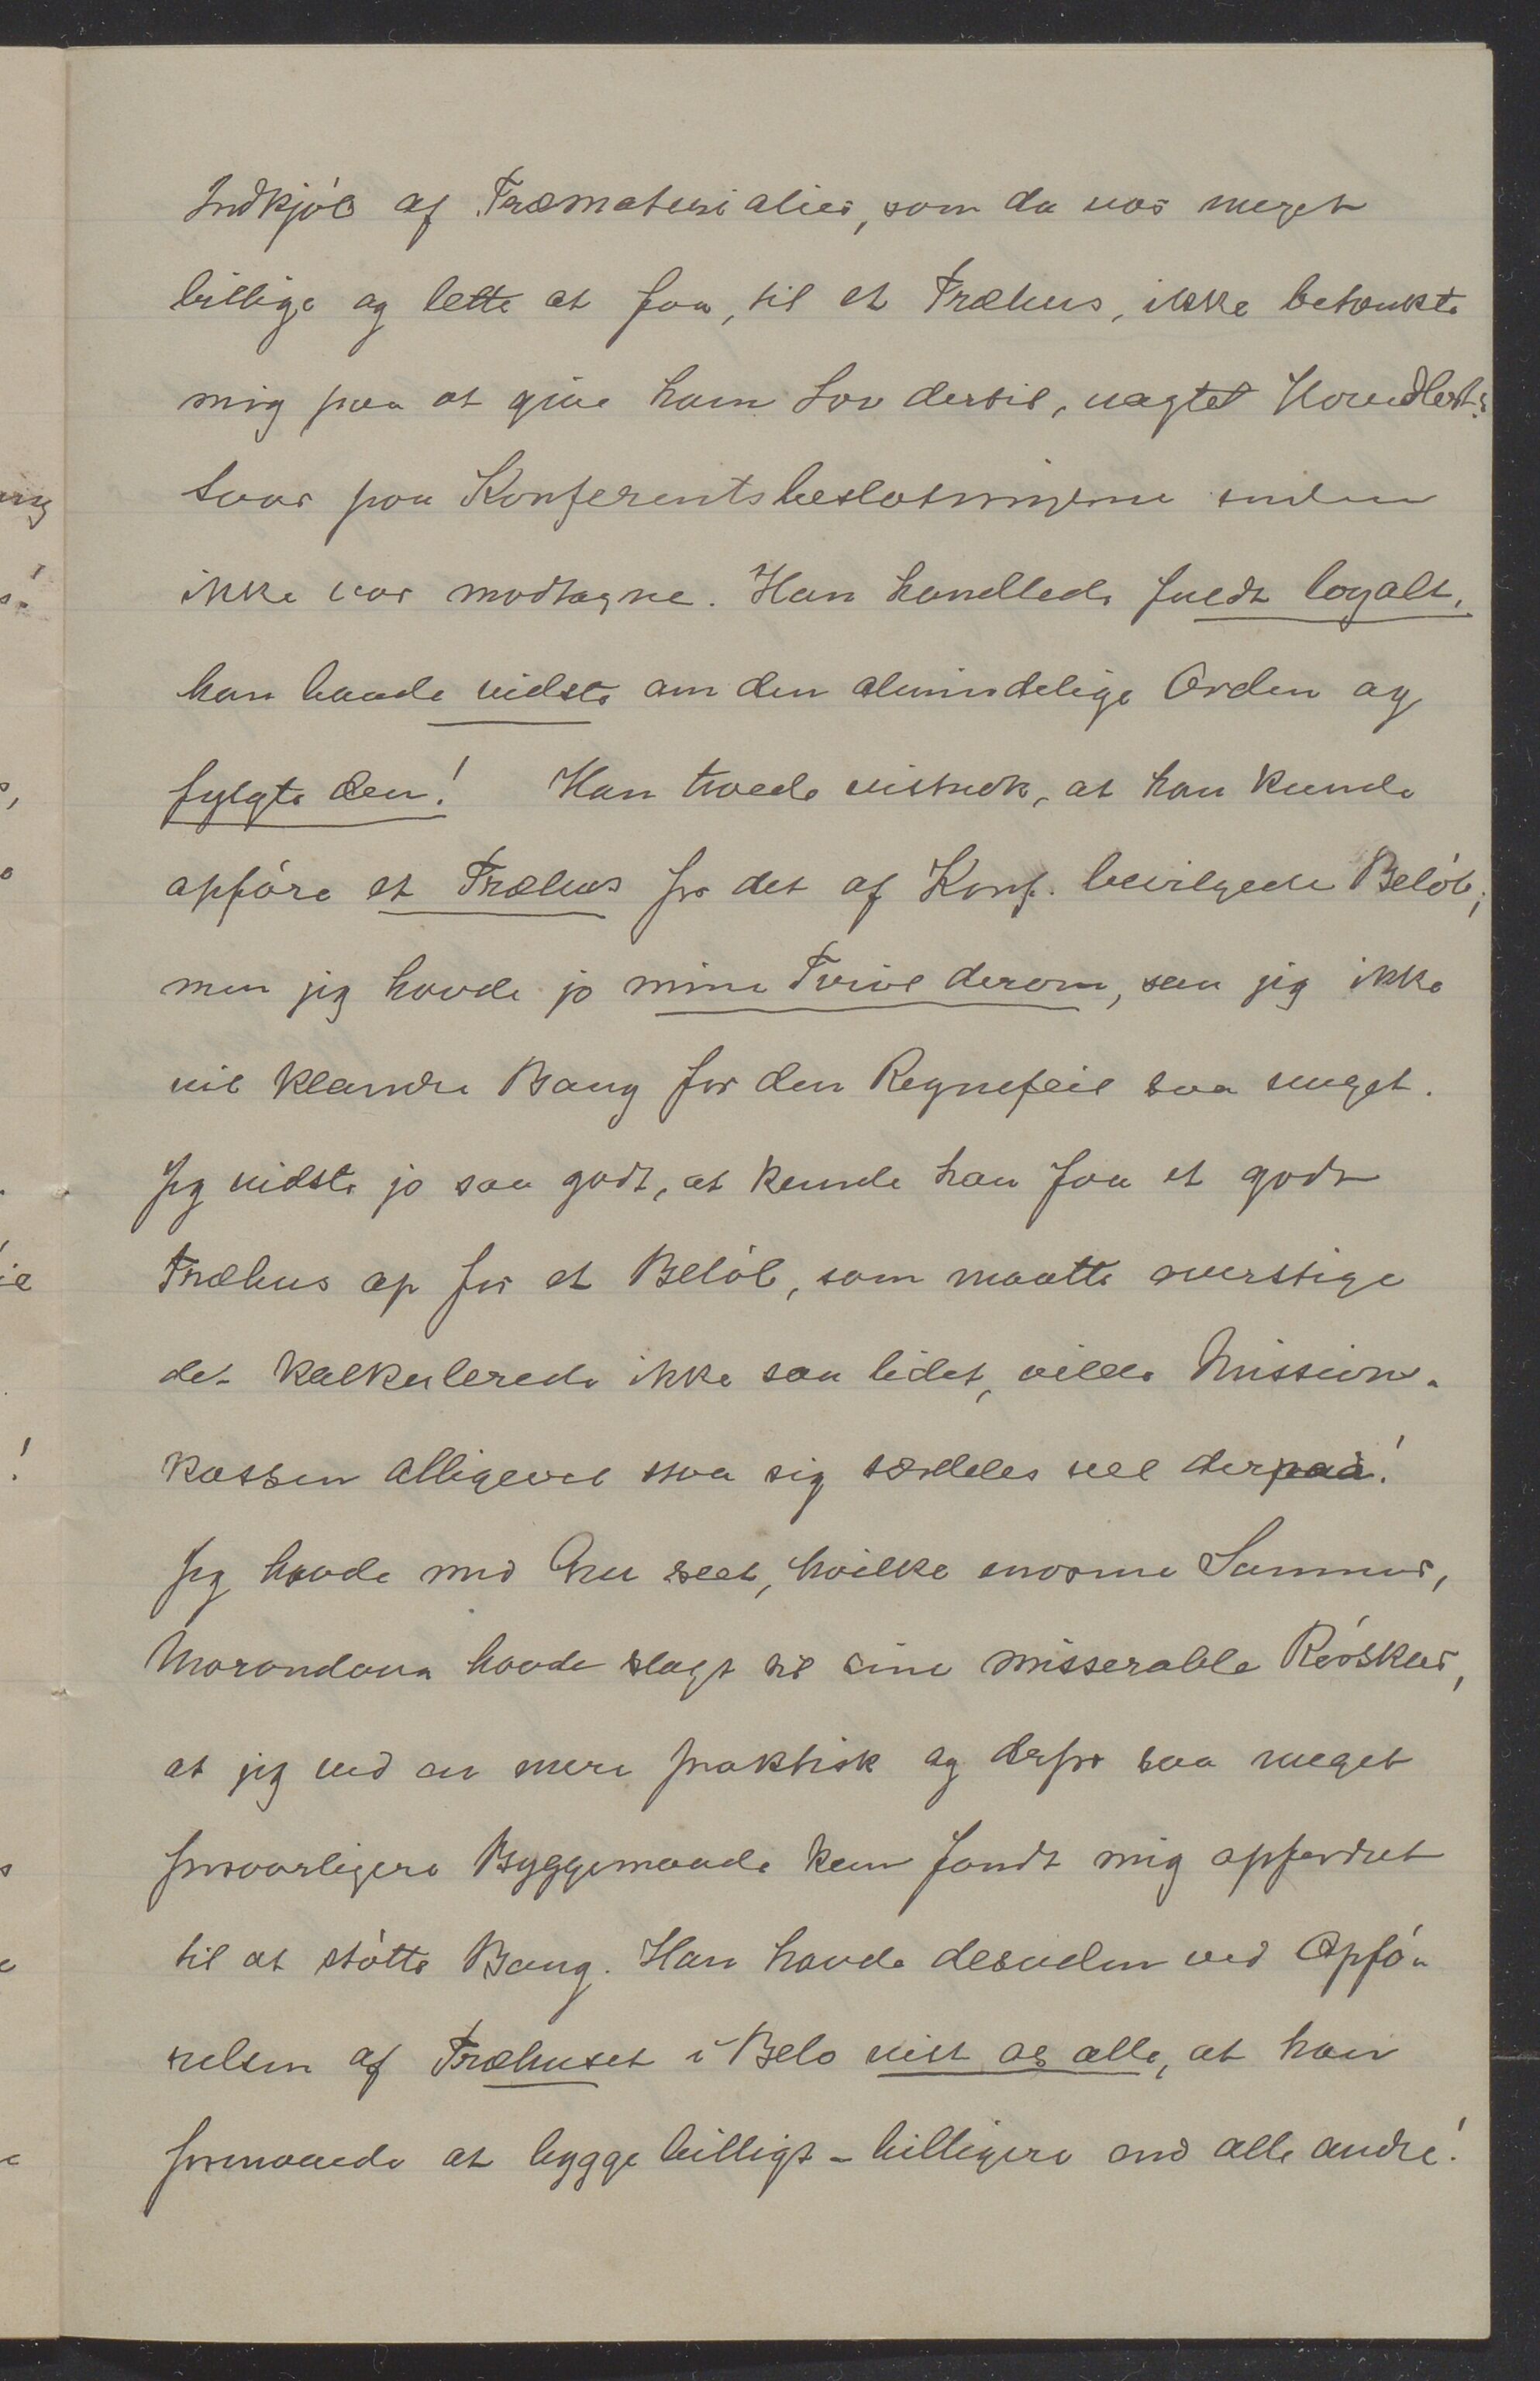 Indkjób af Træmaterialier, som da var meget
billige og lette at faa, til et Træhus, ikke betænkte
mig paa at give ham Lov dertil, uagtet Hovedbest:s
Svar paa Konferentsbeslutningerne endnu
ikke var modtagne. Han handlede fuldt loyalt,
han baade vidste om den almindelige Orden og
fylgte den! Han troede vistnok, at han kunde
opfóre et Træhus for det af Konf. bevilgede Belób;
men jeg havde jo mine Tvivl derom, saa jeg ikke
vil klandre Bang for den Regnefeil saa meget.
Jeg vidste jo saa godt, at kunde han faa et godt
Træhus op for et Belób, som maatte overstige
det kalkulerede ikke saa lidet, vilde Missions-
kassen alligevel staa sig særdeles vel derpaa!
Jeg havde med Gru seet, hvilke enorme Summer,
Morondava havde slugt til sine misserable Rórskur,
at jeg ved en mere praktisk og derfor saa meget
forsvarligere Byggemaade kun fandt mig opfordret
til at stótte Bang. Han havde desuden ved Opfó-
relsen af Træhuset i Belo vist os alle, at han
formaaede at bygge billigt - billigere end alle andre!